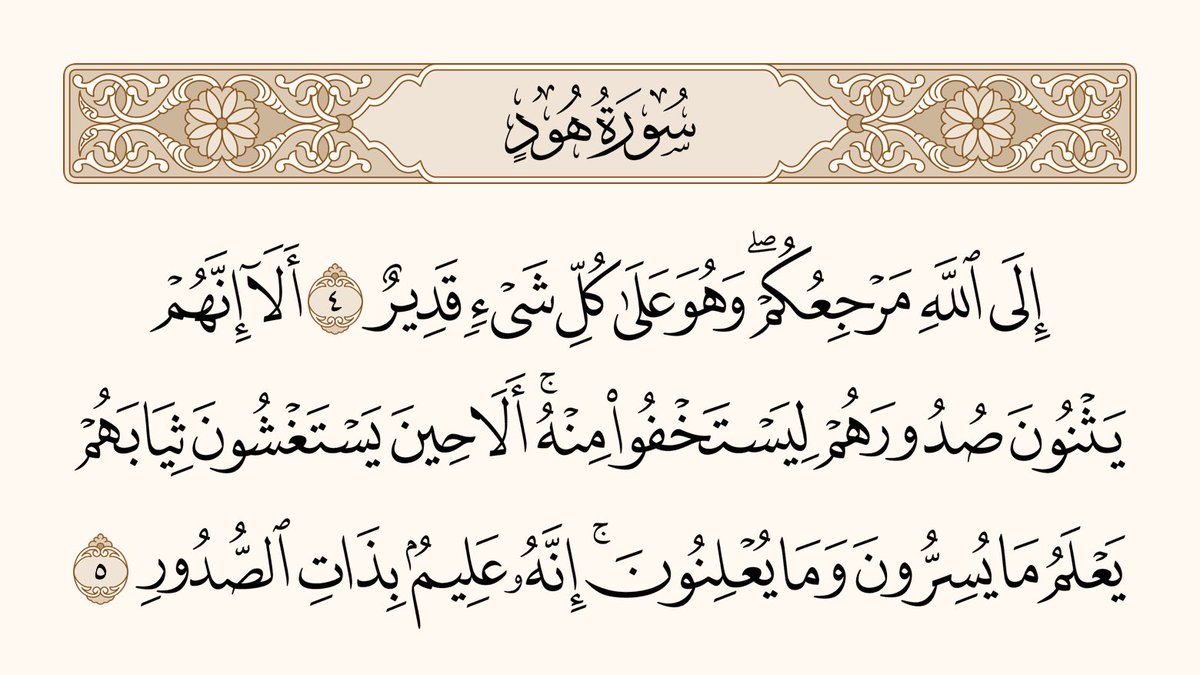 سُورَةُ هُودٍ
إِلَى ٱللَّهِ مَرْجِعُكُمْ ۖ وَهُوَ عَلَىٰ كُلِّ شَىْءٍ قَدِيرٌ ٤ أَلَآ إِنَّهُمْ
يَثْنُونَ صُدُورَهُمْ لِيَسْتَخْفُوا۟ مِنْهُ ۚ أَلَا حِينَ يَسْتَغْشُونَ ثِيَابَهُمْ
يَعْلَمُ مَا يُسِرُّونَ وَمَا يُعْلِنُونَ ۚ إِنَّهُۥ عَلِيمٌۢ بِذَاتِ ٱلصُّدُورِ ٥